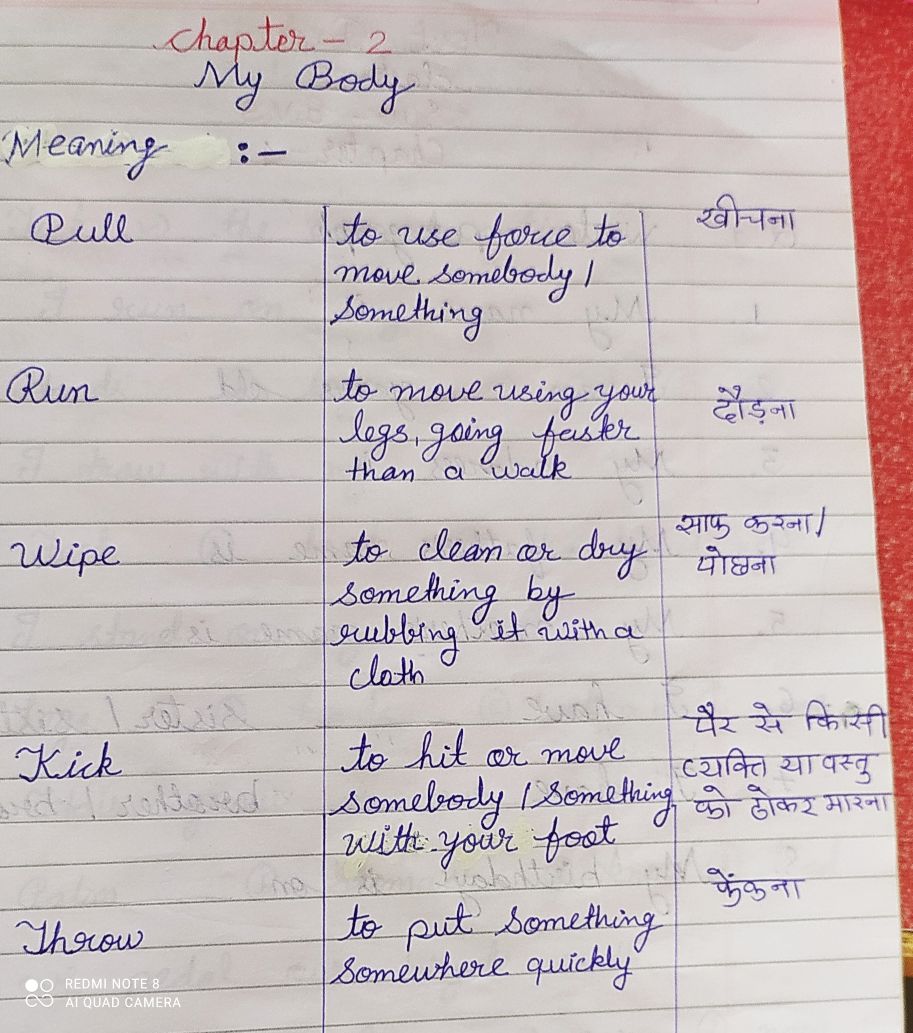 Chapter - 2
My Body
Meaning :-
Pull
to use force to
move somebody /
something
खीचना
Run
to move using your
legs, going faster
than a walk
दौड़ना
Wipe
to clean or dry
something by
rubbing it with a
cloth
साफ करना/
पोछना
Kick
to hit or move
somebody / something
with your foot
पैर से किसी
व्यक्ति या वस्तु
को ठोकर मारना
Throw
to put something
somewhere quickly
फेंकना
REDMI NOTE 8
AI QUAD CAMERA